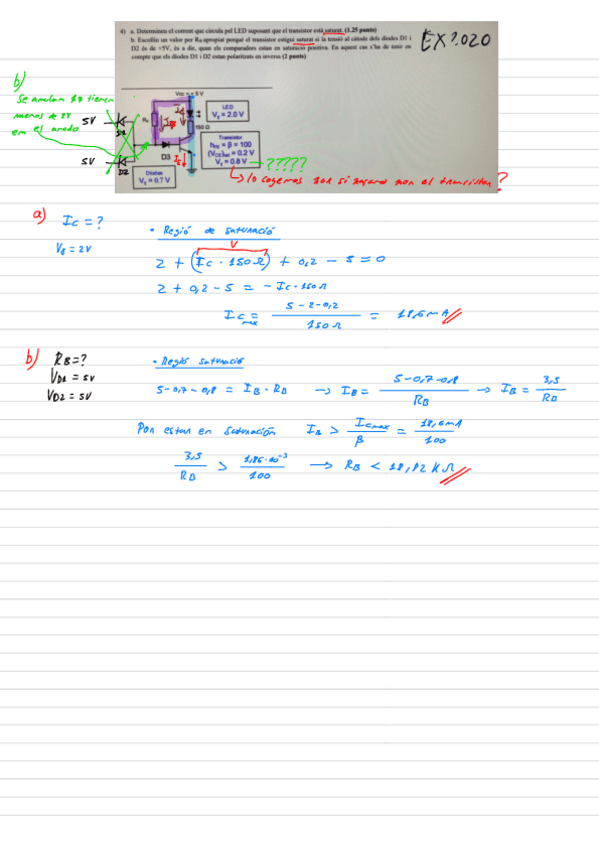 4) a. Determineu el corrent que circula pel LED suposant que el transistor està saturat. (1.25 punts)
b. Escolliu un valor per RB apropiat perquè el transistor estigui saturat si la tensió al càtode dels díodes D1 i
D2 és de +5V, és a dir, quan els comparadors estan en saturació positiva. En aquest cas s'ha de tenir en
compte que els díodes D1 i D2 estan polaritzats en inversa (2 punts)
EX 2020
b)
Se anulan
tienen
menos de
en el anodo
5V
D1
5V
D2
VCC = + 5 V
RB
LED
Vγ = 2.0 V
150 Ω
Transistor
hFE = β = 100
(VCE)sat = 0.2 V
Vγ = 0.8 V
?????
D3
Díodes
Vγ = 0.7 V
lo cogemos
a) Ic = ?
Vγ = 2V
• Regió de saturació
V
2 + (Ic · 150 Ω) + 0,2 - 5 = 0
2 + 0,2 - 5 = - Ic · 150 Ω
Ic max = 5 - 2 - 0,2 / 150 Ω = 18,6 mA
b) RB = ?
VD1 = 5V
VD2 = 5V
• Regió saturació
5 - 0,7 - 0,8 = IB · RB → IB = 5 - 0,7 - 0,8 / RB → IB = 3,5 / RB
Pon estar en saturación IB > Icmax / β = 18,6 mA / 100
3,5 / RB > 1,86·10⁻³ / 100 → RB < 18,82 KΩ